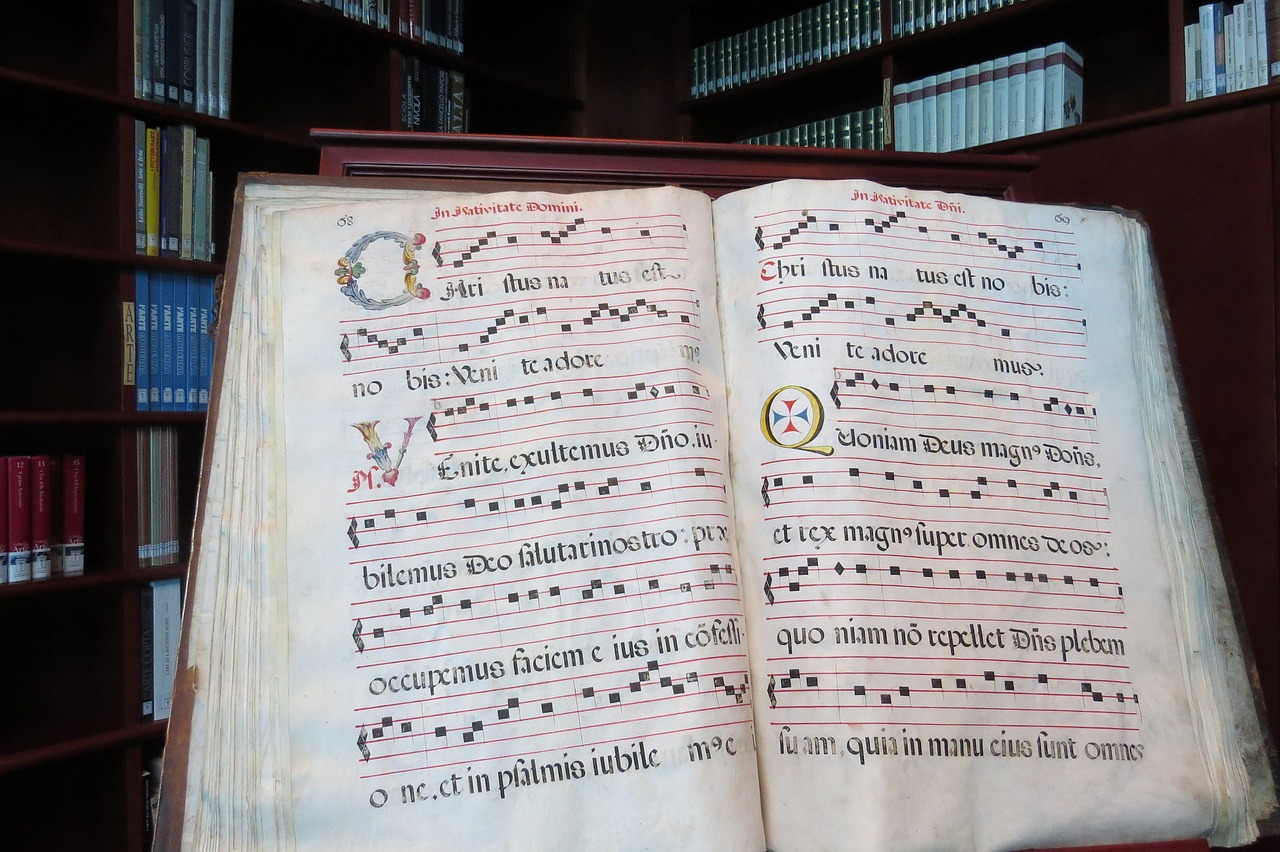 68
In Nativitate Domini.
CHri stus na tus est
no bis: Veni te adore m9
Ps. VEnite, exultemus Dño. iu-
bilemus Deo salutari nostro: præ
occupemus faciem e ius in cõfessi-
o ne, et in psalmis iubile m9 e
In Nativitate Dñi.
69
Chri stus na tus est no bis:
Veni te adore mus.
QUoniam Deus magn9 Doñs,
et rex magn9 super omnes deos:
quo niam nõ repellet Dñs plebem
su am, quia in manu eius sunt omnes
ARTE
L'ARTE
L'ARTE
L'ARTE
L'ARTE
L'ARTE
L'ARTE
12
13